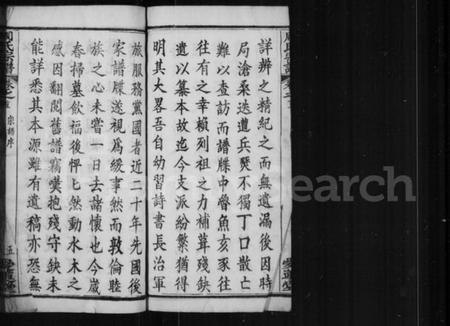 詳辨之精紀之而無遺漏後因時
局滄桑迭遭兵燹不獨丁口散亡
難以查訪而譜牒中魯魚亥豕往
往有之幸賴列祖之力補葺殘缺
遺以纂本故迄今支派紛繁猶得
明其大畧吾自幼習詩書長治軍
旅服務黨國者近二十年先國後
家譜牒遂視為緩事然而敦倫睦
族之心未嘗一日去諸懷也今歲
春掃墓飲福後怦怦然動水木之
感因翻閱舊譜竊囊抱殘守缺未
能詳悉其本源雖有遺稿亦恐無
周氏宗譜 卷之首 宗譜序 五 愛蓮堂